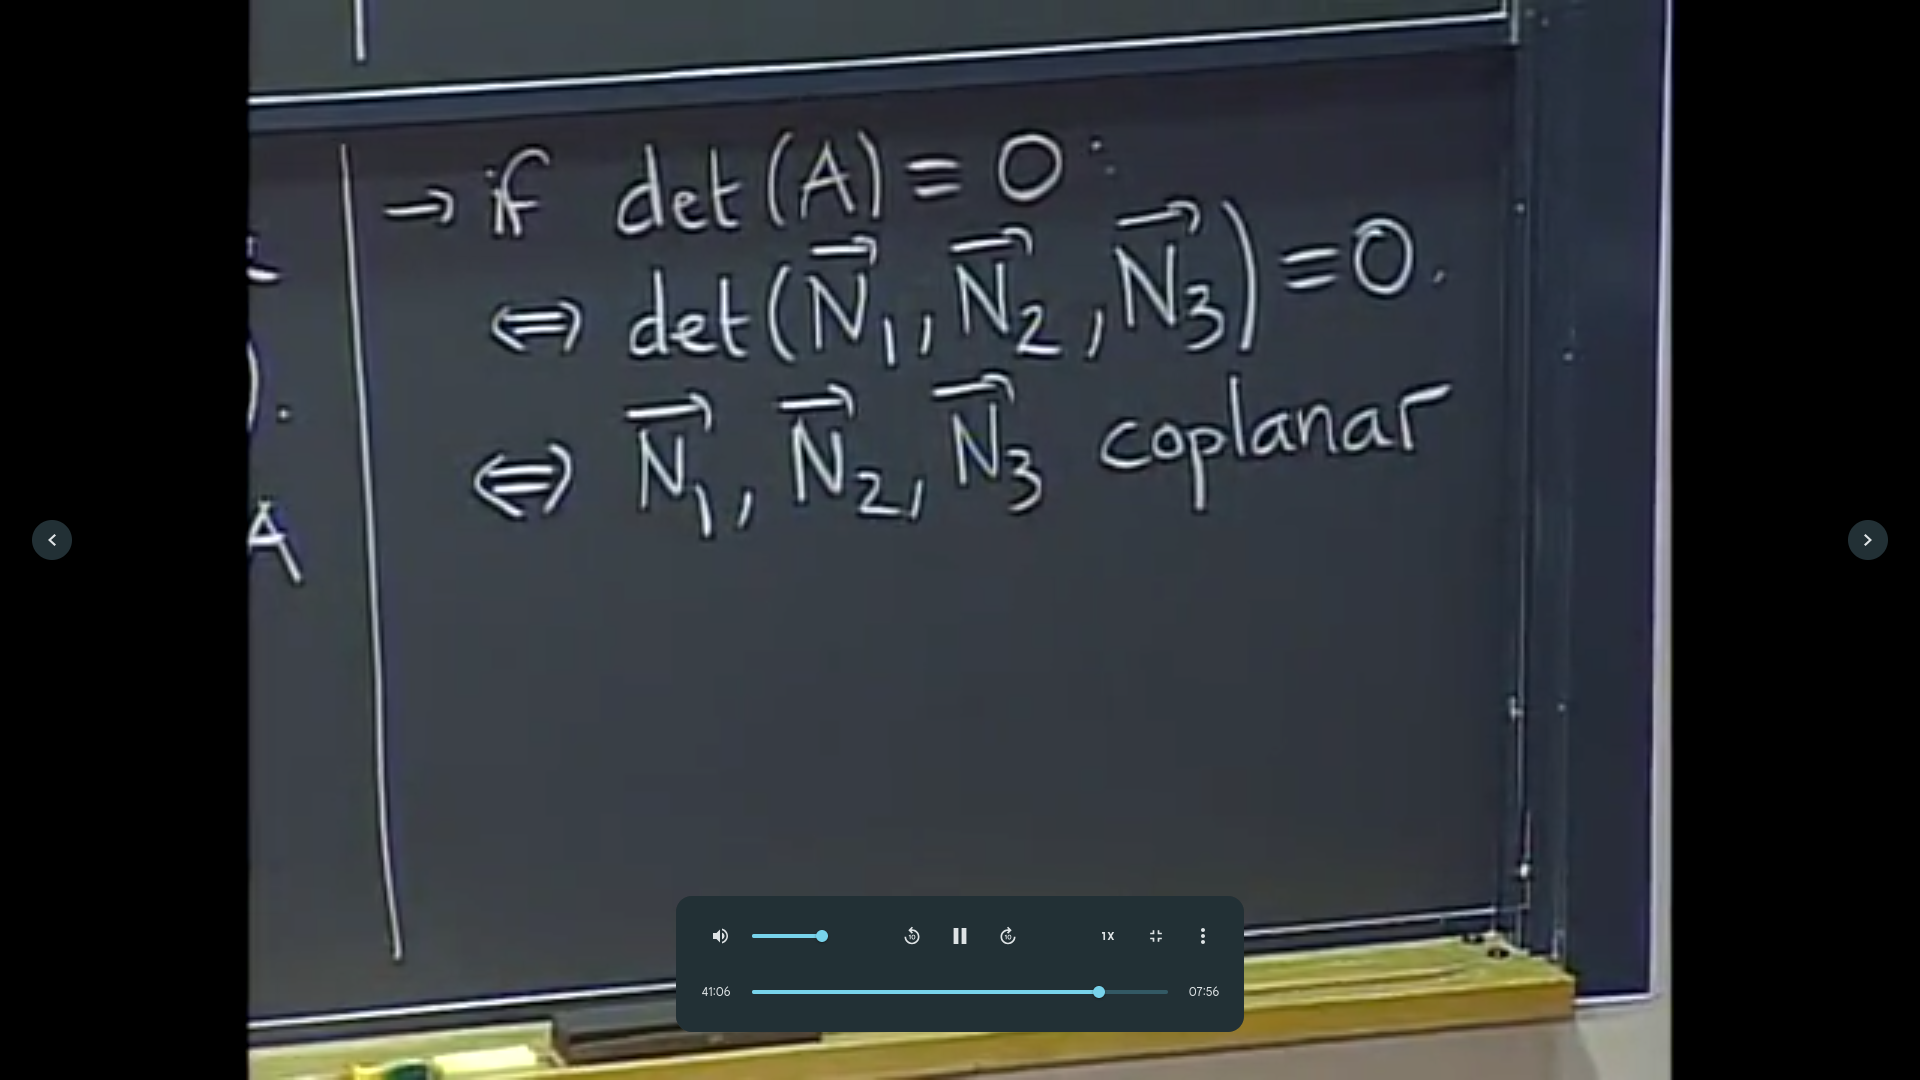 → if det(A) = 0:
⇔ det(N⃗₁, N⃗₂, N⃗₃) = 0.
⇔ N⃗₁, N⃗₂, N⃗₃ coplanar
).
A
10
10
1X
41:06
07:56